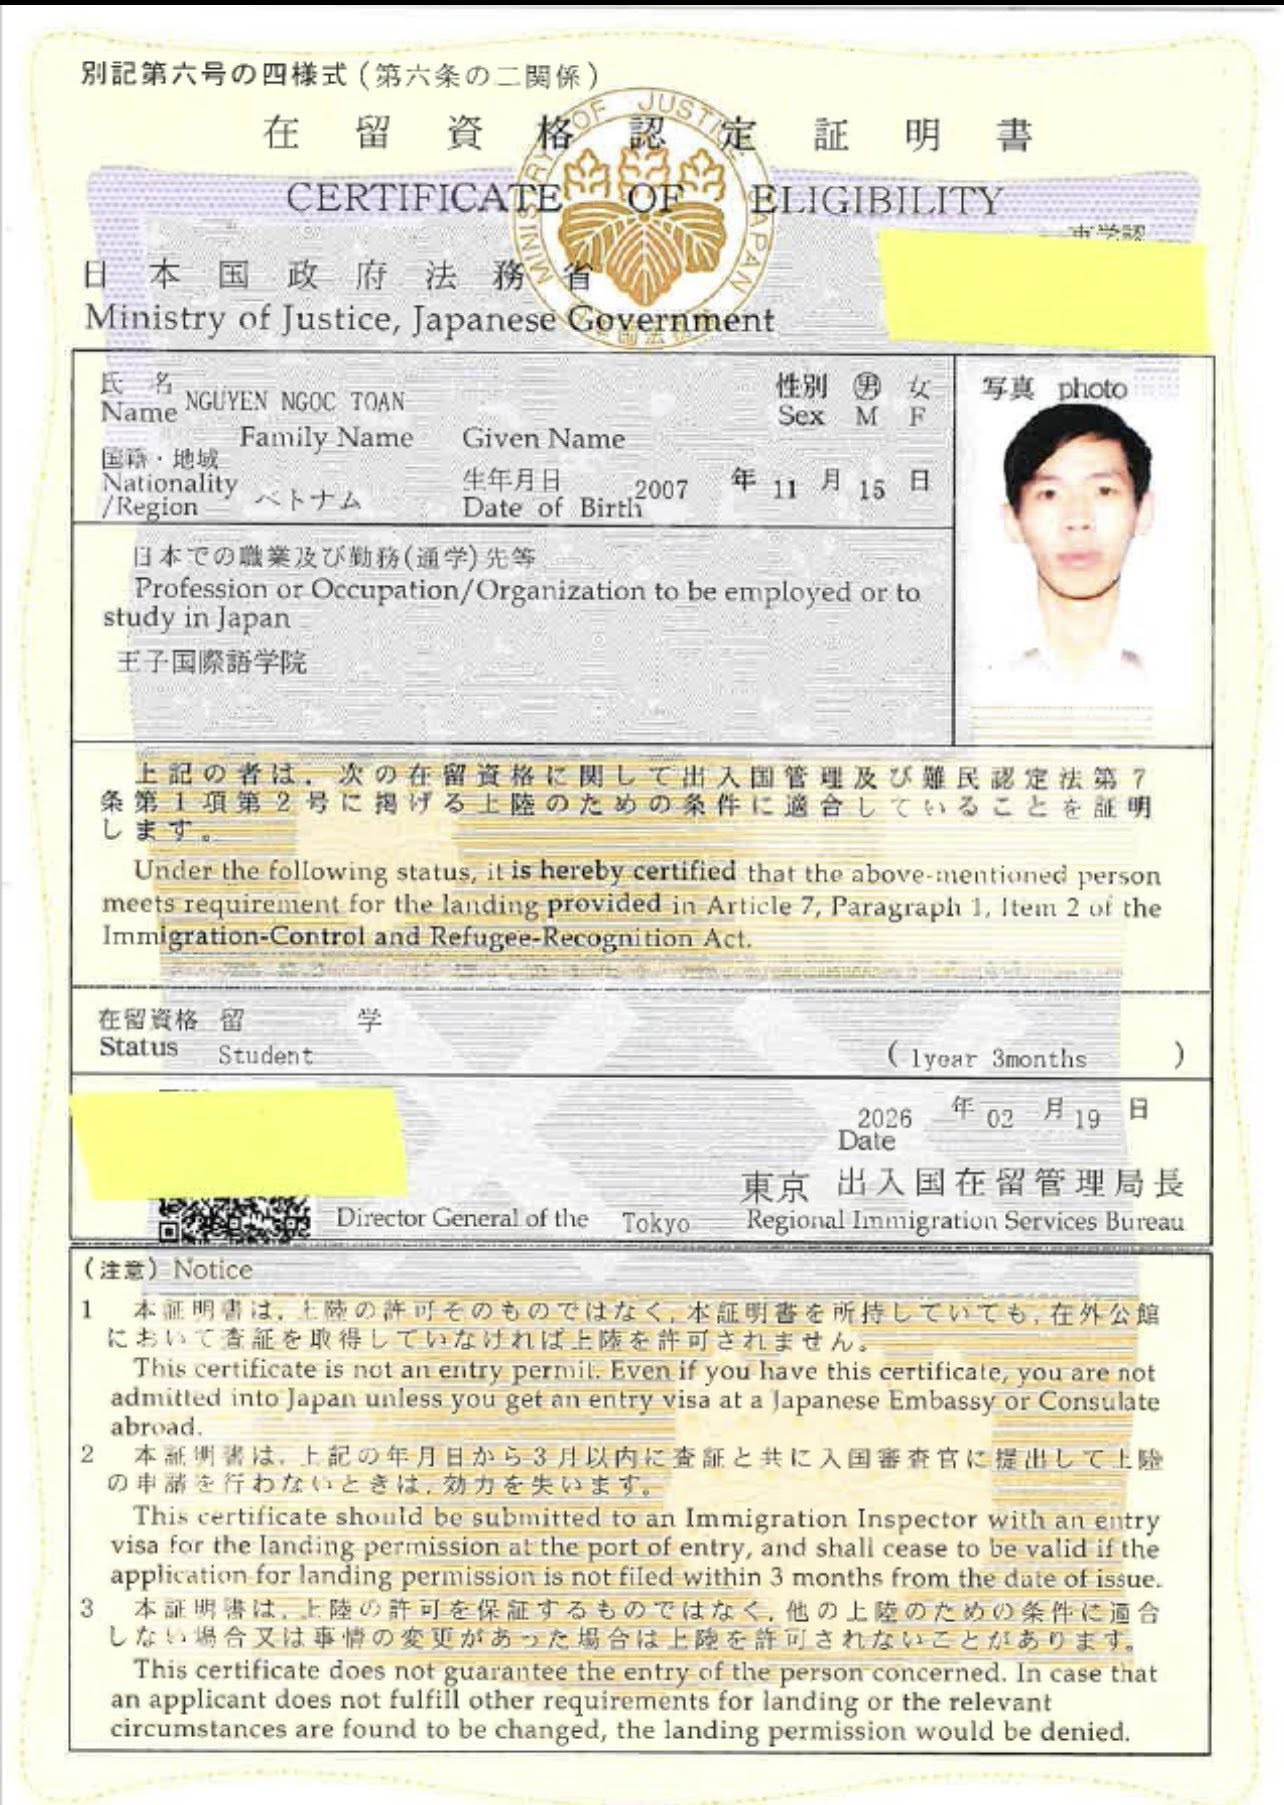 別記第六号の四様式(第六条の二関係)
在留資格認定証明書
CERTIFICATE OF ELIGIBILITY
MINISTRY OF JUSTICE JAPAN
日本国政府法務省
Ministry of Justice, Japanese Government
氏名 NGUYEN NGOC TOAN 性別 男 女
Name Sex M F
Family Name Given Name
写真 photo
国籍・地域 生年月日 2007 年 11 月 15 日
Nationality Date of Birth
/Region ベトナム
日本での職業及び勤務(通学)先等
Profession or Occupation/Organization to be employed or to
study in Japan
王子国際語学院
上記の者は,次の在留資格に関して出入国管理及び難民認定法第7
条第1項第2号に掲げる上陸のための条件に適合していることを証明
します。
Under the following status, it is hereby certified that the above-mentioned person
meets requirement for the landing provided in Article 7, Paragraph 1, Item 2 of the
Immigration-Control and Refugee-Recognition Act.
在留資格 留学
Status Student ( 1year 3months )
2026 年 02 月 19 日
Date
東京 出入国在留管理局長
Director General of the Tokyo Regional Immigration Services Bureau
(注意) Notice
1 本証明書は,上陸の許可そのものではなく,本証明書を所持していても,在外公館
において査証を取得していなければ上陸を許可されません。
This certificate is not an entry permit. Even if you have this certificate, you are not
admitted into Japan unless you get an entry visa at a Japanese Embassy or Consulate
abroad.
2 本証明書は,上記の年月日から3月以内に査証と共に入国審査官に提出して上陸
の申請を行わないときは,効力を失います。
This certificate should be submitted to an Immigration Inspector with an entry
visa for the landing permission at the port of entry, and shall cease to be valid if the
application for landing permission is not filed within 3 months from the date of issue.
3 本証明書は,上陸の許可を保証するものではなく,他の上陸のための条件に適合
しない場合又は事情の変更があった場合は上陸を許可されないことがあります。
This certificate does not guarantee the entry of the person concerned. In case that
an applicant does not fulfill other requirements for landing or the relevant
circumstances are found to be changed, the landing permission would be denied.